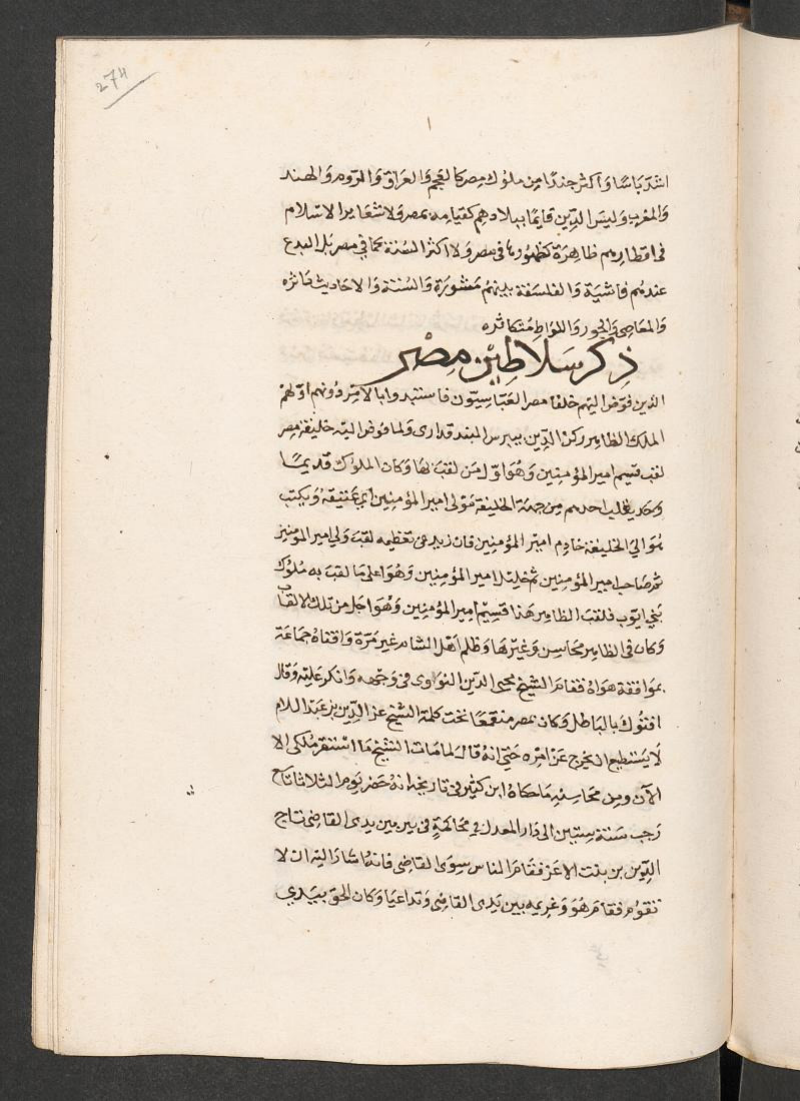 274
اشد باسا واكثر جندا من ملوك مصر كالعجم والعراق والروم والهند
والمغرب وليس الدين قايما ببلادهم كقيامه بمصر ولا شعاير الاسلام
في اقطارهم ظاهرة كظهورها في مصر ولا اكثر السنة كما في مصر بل البدع
عندهم فاشية والفلسفة بينهم مشورة والسنة والاحاديث داثره
والمعاصي والخمور واللواط متكاثره
ذكر سلاطين مصر
الذين فوض اليهم خلفا مصر العباسيون فاستبدوا بالامر دونهم اولهم
الملك الظاهر ركن الدين بيبرس البندقداري ولما فوض اليه خليفة مصر
لقب قسيم امير المومنين وهو اول من لقب بها وكان الملوك قديما
يكتب احدهم من جهة الخليفة مولى امير المومنين اي عتيقه ويكتب
هو الى الخليفة خادم امير المؤمنين فان زيد في تعظيمه لقب ولي امير المومنين
ثم صاحب امير المومنين ثم خليل امير المومنين وهو اعلى ما لقب به ملوك
بني ايوب فلقب الظاهر هذا قسيم امير المؤمنين وهو اجل من تلك الالقاب
وكان في الظاهر محاسن وغيرها وظلم اهل الشام غير مرة وافتاه جماعة
بموافقة هواه فقام الشيخ محيي الدين النواوى في وجهه وانكر عليه وقال
افتوك بالباطل وكان بمصر منقمعا تحت كلمة الشيخ عز الدين بن عبد السلام
لا يستطيع ان يخرج عن امره حتى انه قال لما مات الشيخ ما استقر ملكى الا
الآن ومن محاسنه ما حكاه ابن كثير في تاريخه انه حضر يوم الثلاثا تاسع
رجب سنة ستين الى دار العدل في محاكمة في بير بين يدى القاضى تاج
الدين بن بنت الاعز فقام الناس سوى القاضي فانه اشار اليه ان لا
تقوم فقام هو وغريمه بين يدى القاضى وتداعيا وكان الحق بيدي